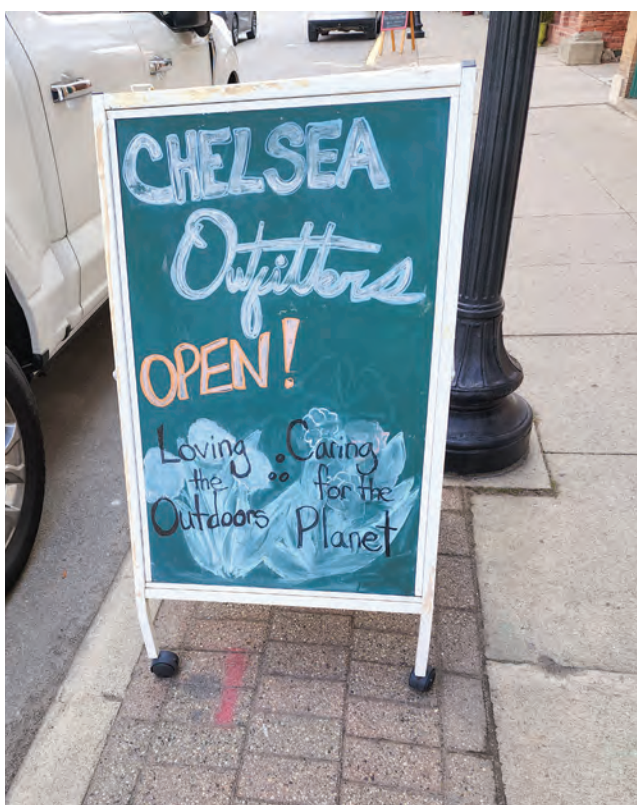 CHELSEA
Outfitters
OPEN!
Loving
the
Outdoors
Caring
for the
Planet